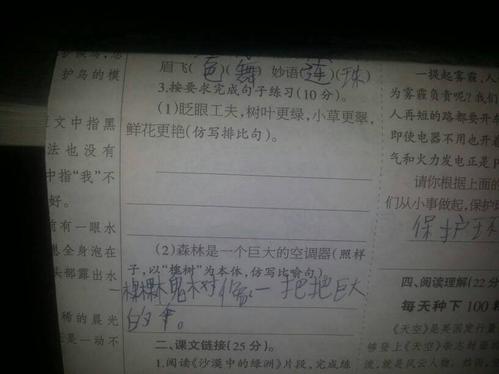 护鸟的模
文中指黑
法也没有
中指“我”不
好。
前有一眼水
全身泡在
头都露出水
稀的晨光
是一动不
眉飞(色)(舞) 妙语(连)(珠)
3.按要求完成句子练习(10分)。
(1)眨眼工夫,树叶更绿,小草更翠,
鲜花更艳(仿写排比句)。
(2)森林是一个巨大的空调器(照样
子,以“榕树”为本体,仿写比喻句)
棵棵榕树像一把把巨大
的伞。
二、课文链接(25分)。
1.阅读《沙漠中的绿洲》片段,完成练
一提起雾霾,人
为雾霾负责呢?我们
人再短的路都要开车
即使电器不用也开着
气和火力发电正是
请你根据上面的
们从小事做起,保护
保护
四、阅读理解(22分
每天种下100
《天空》是英国发行量
够登上《天空》杂志封面
流,就是风云人物。然而,